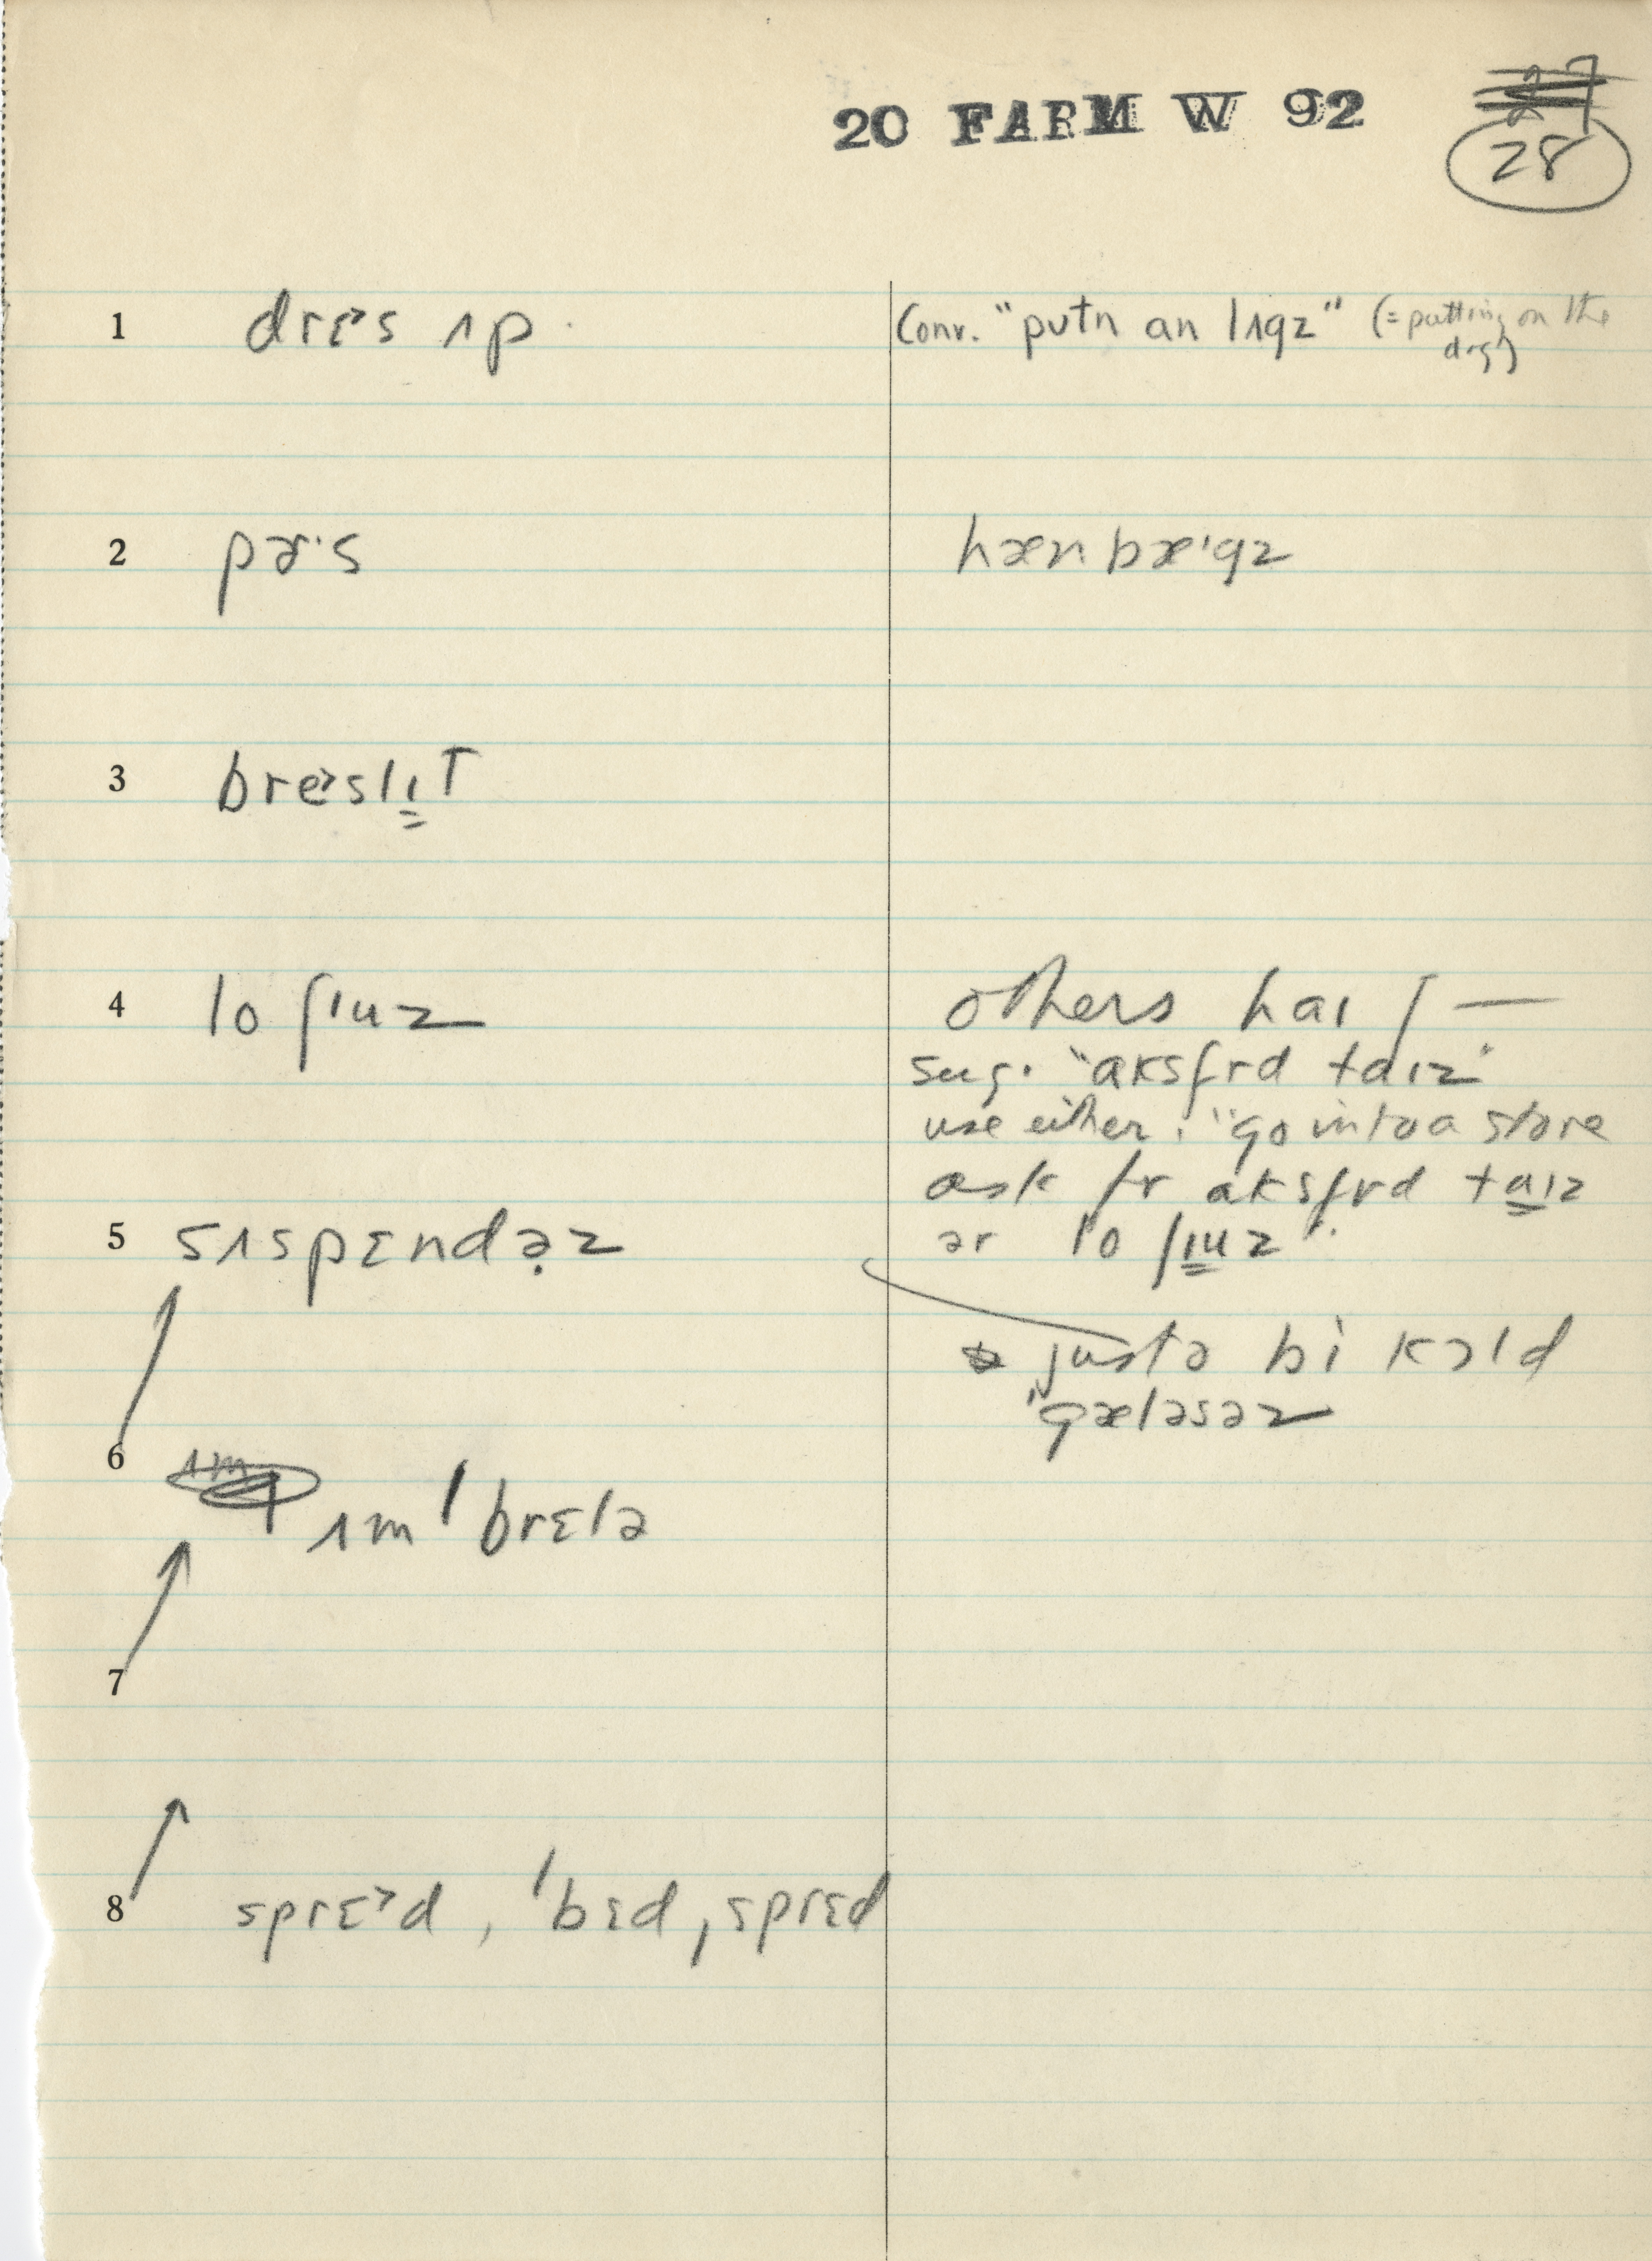 20 FARM W 92
28
1 drɛ˃s ʌp Conv. "putn an lʌgz" (=putting on the
dog)
2 pɚ·s hænbæˑgz
3 bre˃slɪ̳t
4 lo ʃɪuz others hai ʃ—
sug. "aksfrd taɪz"
use either. "go into a store
ask fr aksfrd taɪz
ər lo ʃɪuz".
5 sʌspɛndə̣z
justə bi kɔld
'gæləsəz
6 ʌm'brɛlə
7
8 sprɛ˃d, 'bɛd,sprɛd